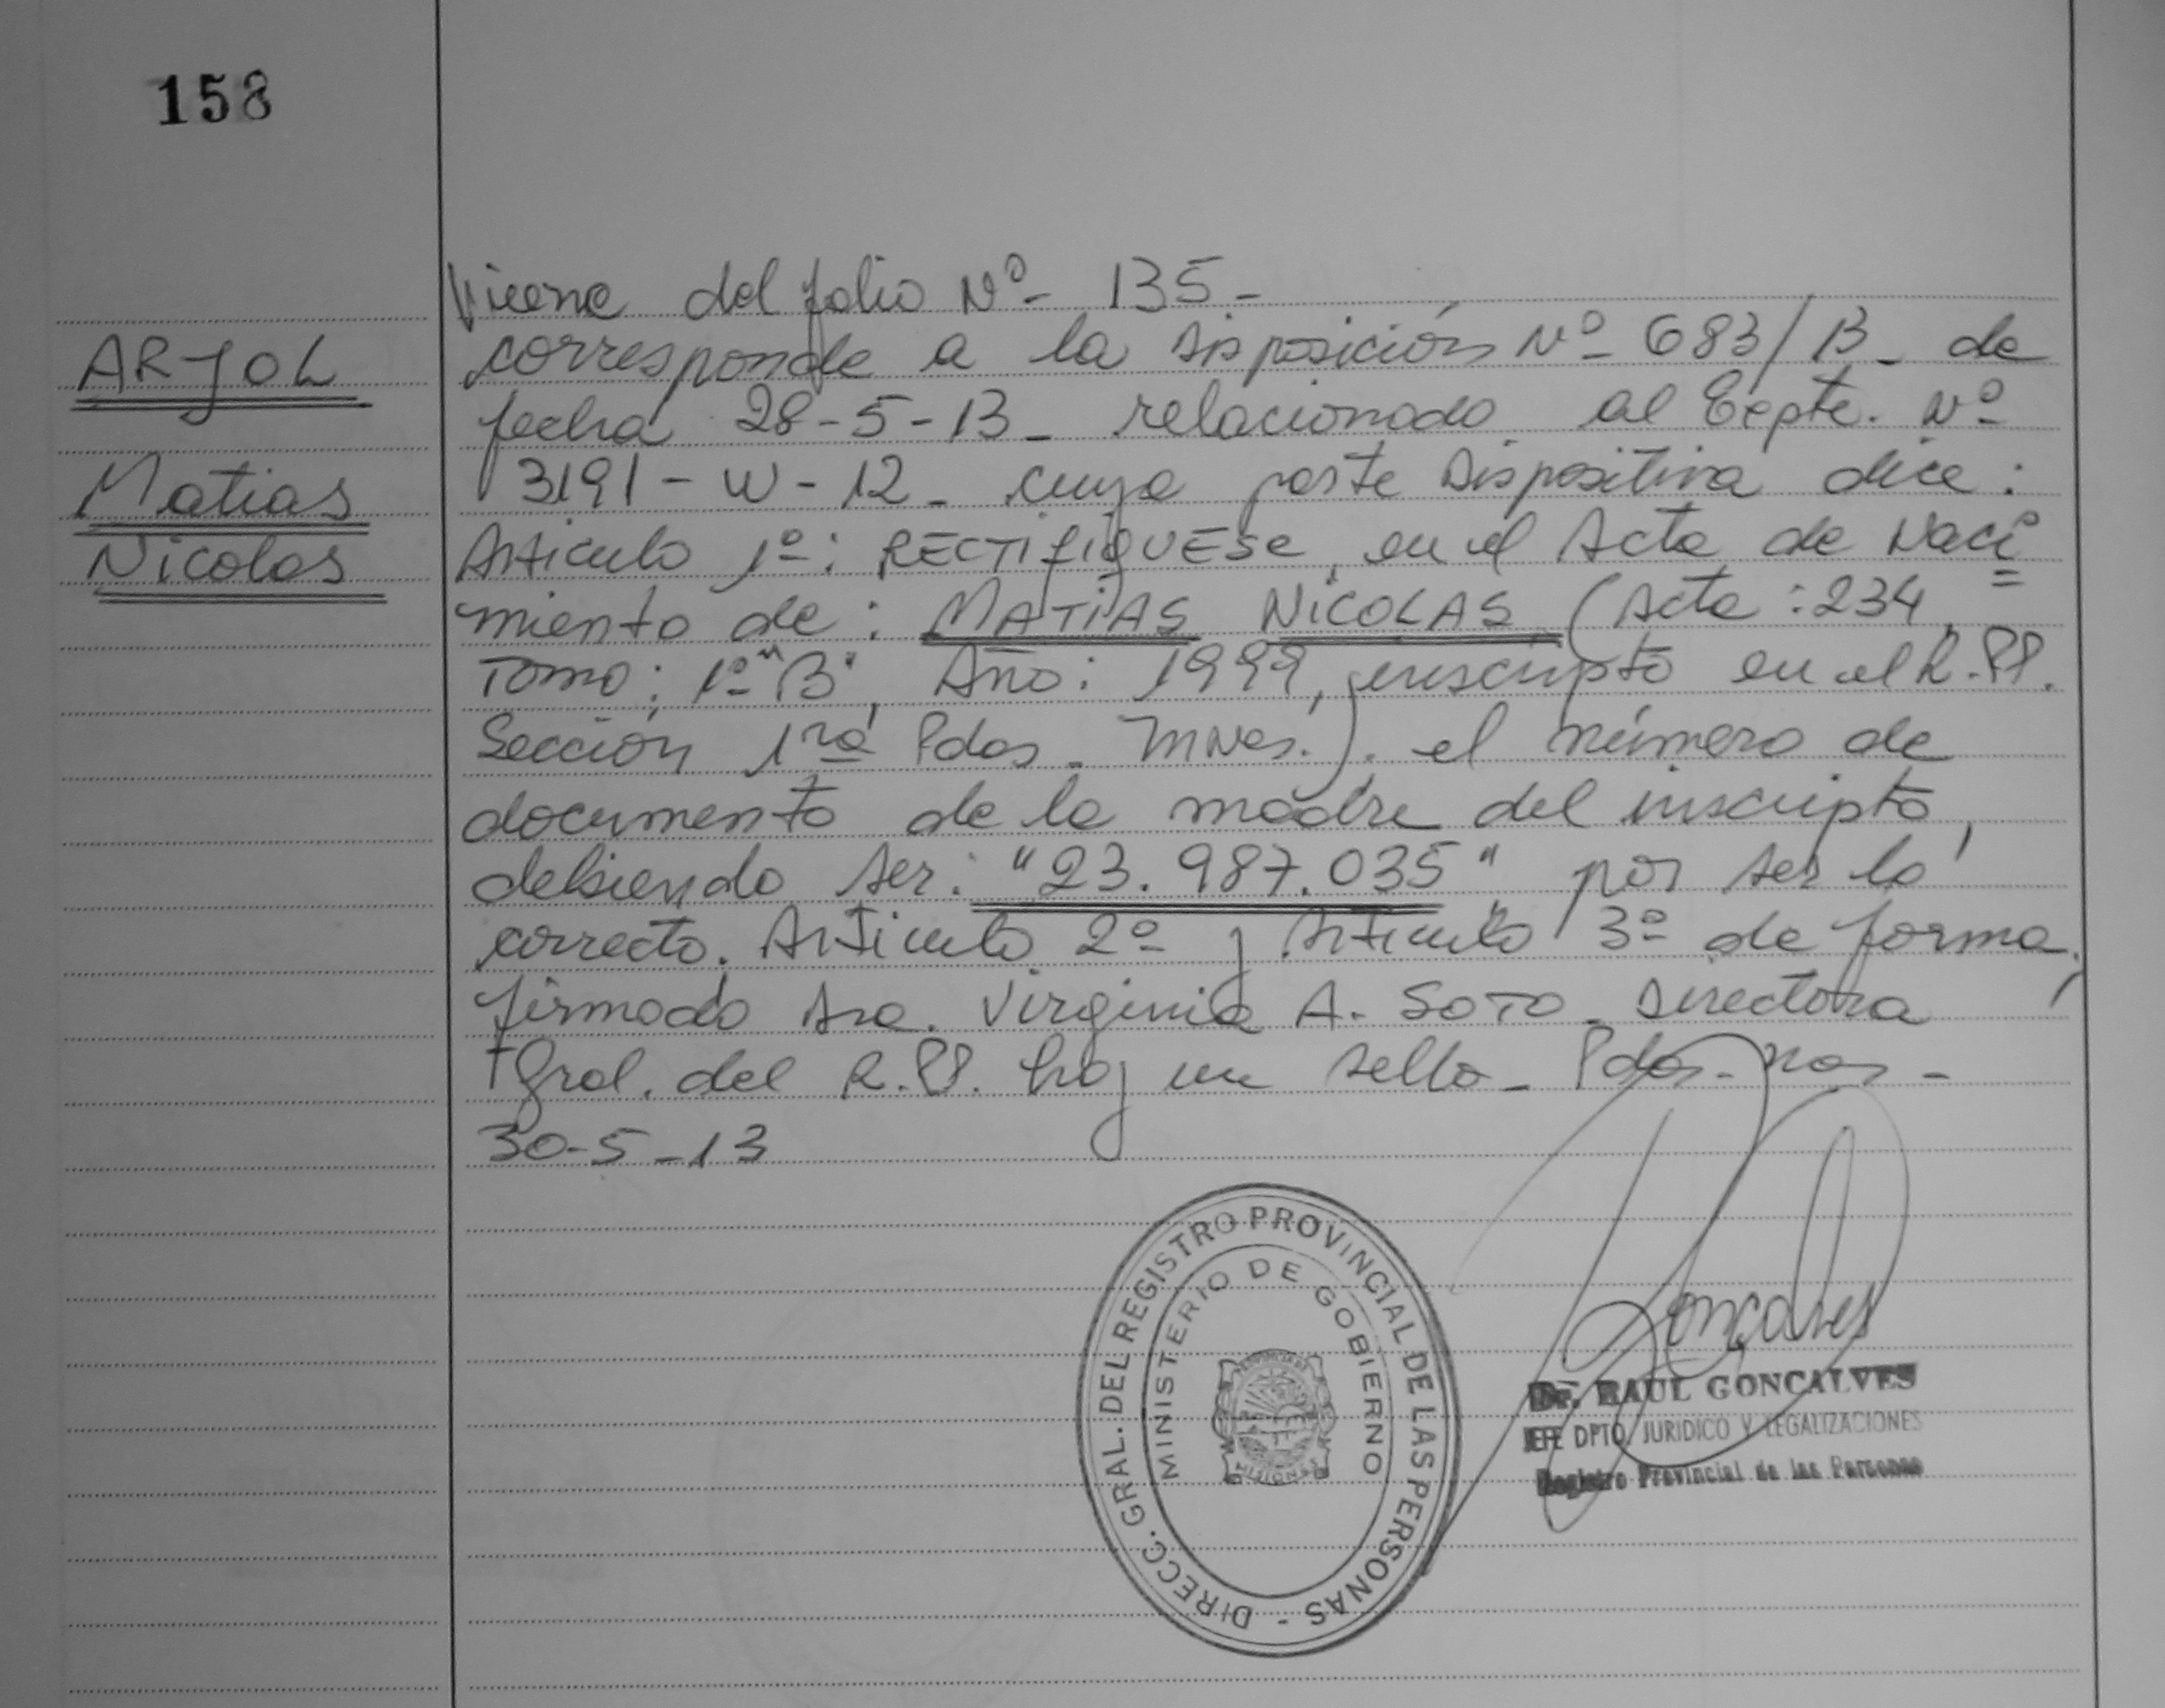 158
Viene del folio Nº- 135-
corresponde a la disposición Nº- 683/13- de
ARJOL
fecha 28-5-13- relacionado al Expte. Nº
3191-W-12- cuya parte dispositiva dice:
Matias
Articulo 1º: RECTIFIQUESE, en el Acta de Naci
Nicolas
miento de: MATIAS NICOLAS (Acta: 234
Tomo: 1º "B", Año: 1999, inscripto en el R.PP.
Sección 1ra Pdas. Mnes.). el número de
documento de la madre del inscripto,
debiendo ser: "23.987.035" por ser lo
correcto. Articulo 2º y Articulo 3º de forma,
firmado Sra. Virginia A. SOTO. Directora
Gral. del R.PP. hay un sello- Pdas.
30-5-13
DIRECC. GRAL. DEL REGISTRO PROVINCIAL DE LAS PERSONAS -
MINISTERIO DE GOBIERNO
MISIONES
Goncalves
Dr. RAUL GONCALVES
JEFE DPTO. JURIDICO Y LEGALIZACIONES
Registro Provincial de las Personas